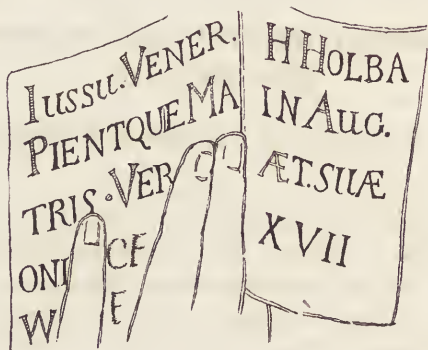 IUSSU. VENER.
PIENTQUE MA
TRIS. VER
ONI CE
W E
H HOLBA
IN AUG.
ÆT. SUÆ
XVII